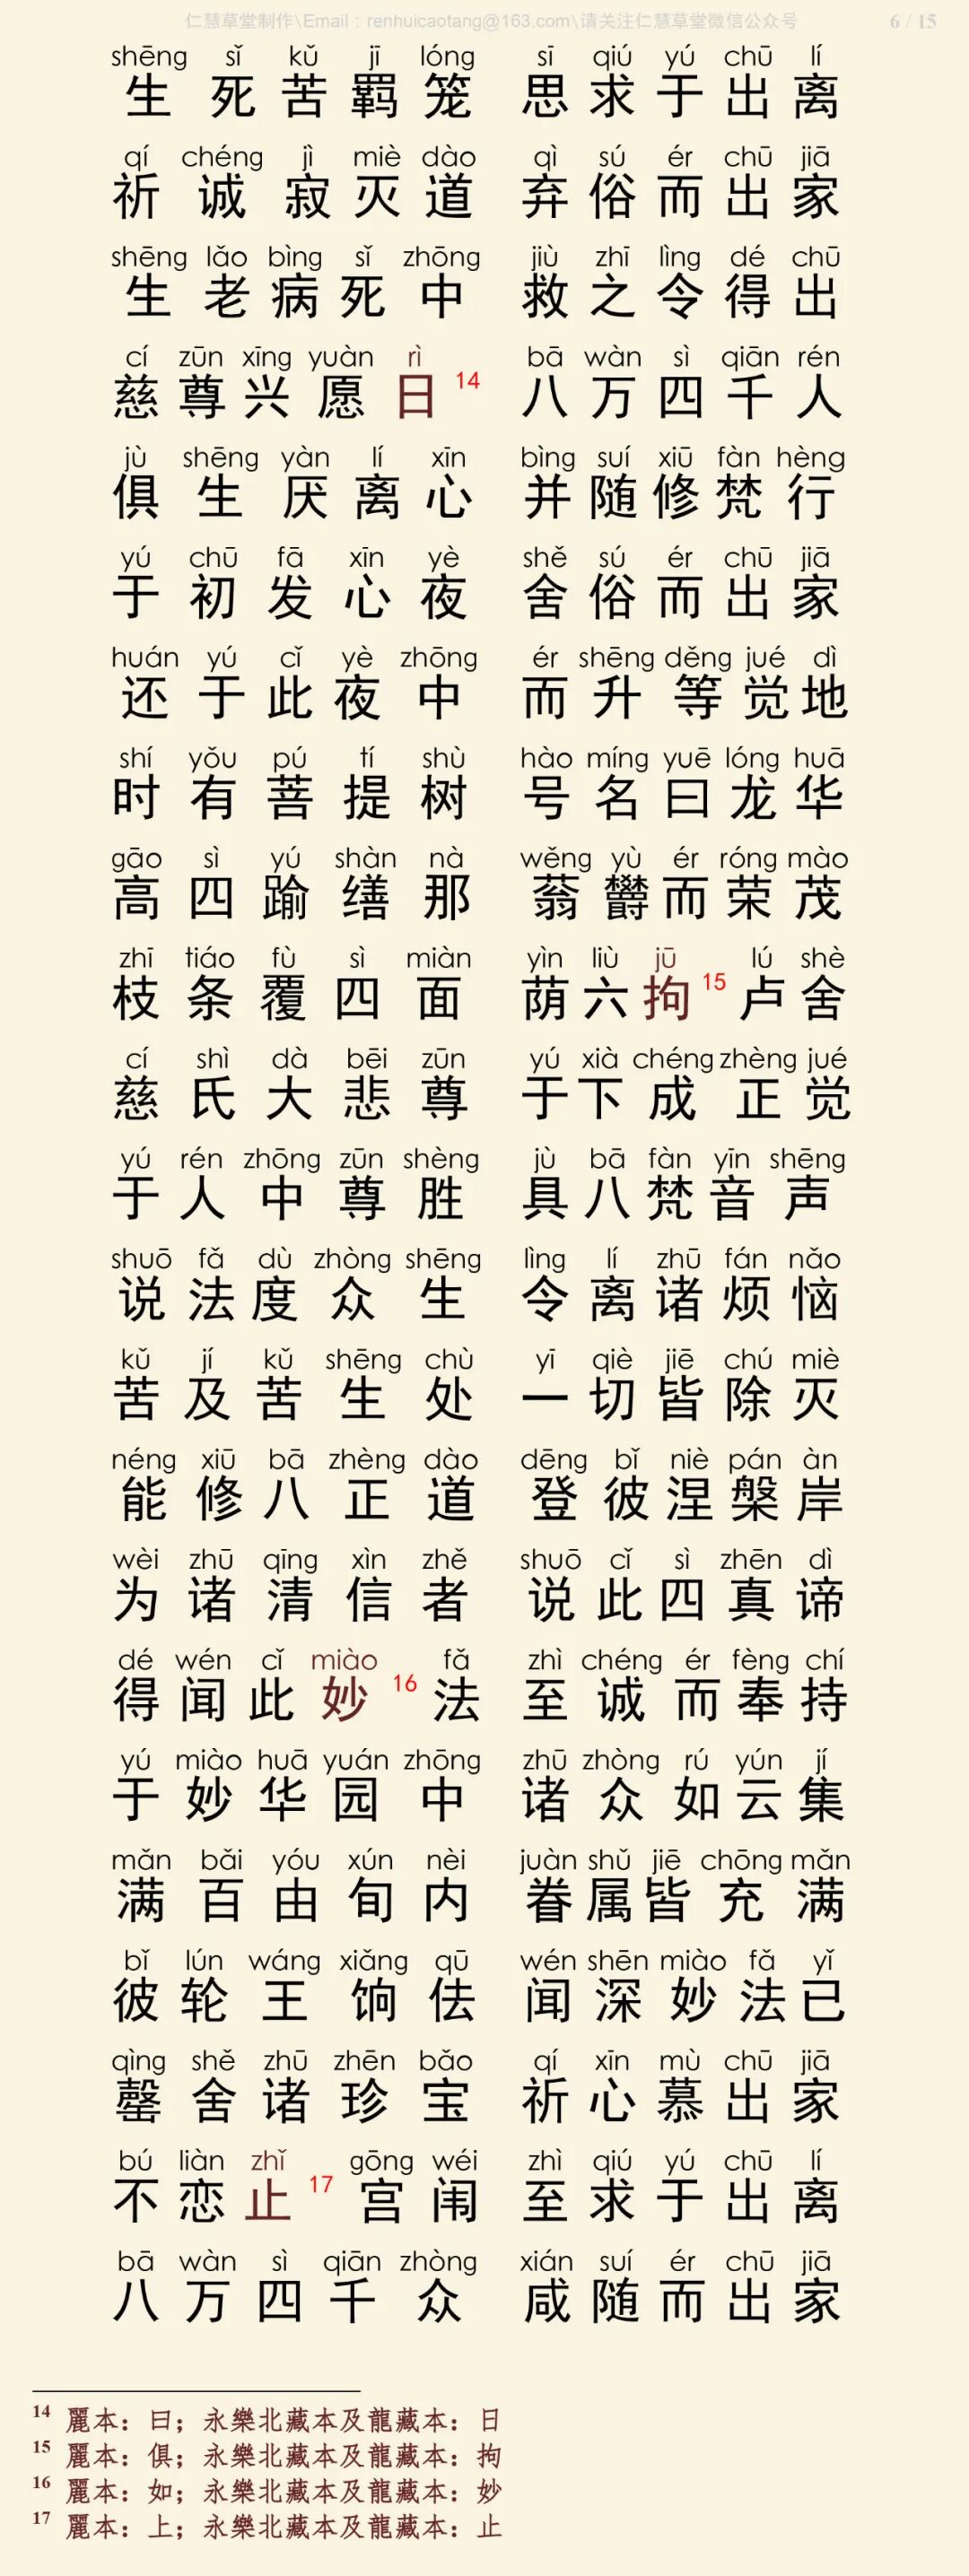 仁慧草堂制作\Email：renhuicaotang@163.com\请关注仁慧草堂微信公众号 6 / 15
shēng sǐ kǔ jī lóng sī qiú yú chū lí
生死苦羁笼 思求于出离
qí chéng jì miè dào qì sú ér chū jiā
祈诚寂灭道 弃俗而出家
shēng lǎo bìng sǐ zhōng jiù zhī lìng dé chū
生老病死中 救之令得出
cí zūn xīng yuàn rì bā wàn sì qiān rén
慈尊兴愿日14 八万四千人
jù shēng yàn lí xīn bìng suí xiū fàn hèng
俱生厌离心 并随修梵行
yú chū fā xīn yè shě sú ér chū jiā
于初发心夜 舍俗而出家
huán yú cǐ yè zhōng ér shēng děng jué dì
还于此夜中 而升等觉地
shí yǒu pú tí shù hào míng yuē lóng huā
时有菩提树 号名曰龙华
gāo sì yú shàn nà wěng yù ér róng mào
高四踰缮那 蓊欝而荣茂
zhī tiáo fù sì miàn yìn liù jū lú shè
枝条覆四面 荫六拘15卢舍
cí shì dà bēi zūn yú xià chéng zhèng jué
慈氏大悲尊 于下成正觉
yú rén zhōng zūn shèng jù bā fàn yīn shēng
于人中尊胜 具八梵音声
shuō fǎ dù zhòng shēng lìng lí zhū fán nǎo
说法度众生 令离诸烦恼
kǔ jí kǔ shēng chù yī qiè jiē chú miè
苦及苦生处 一切皆除灭
néng xiū bā zhèng dào dēng bǐ niè pán àn
能修八正道 登彼涅槃岸
wèi zhū qīng xìn zhě shuō cǐ sì zhēn dì
为诸清信者 说此四真谛
dé wén cǐ miào fǎ zhì chéng ér fèng chí
得闻此妙16法 至诚而奉持
yú miào huā yuán zhōng zhū zhòng rú yún jí
于妙华园中 诸众如云集
mǎn bǎi yóu xún nèi juàn shǔ jiē chōng mǎn
满百由旬内 眷属皆充满
bǐ lún wáng xiǎng qū wén shēn miào fǎ yǐ
彼轮王饷佉 闻深妙法已
qìng shě zhū zhēn bǎo qí xīn mù chū jiā
罄舍诸珍宝 祈心慕出家
bú liàn zhǐ gōng wéi zhì qiú yú chū lí
不恋止17宫闱 至求于出离
bā wàn sì qiān zhòng xián suí ér chū jiā
八万四千众 咸随而出家
14 麗本：曰；永樂北藏本及龍藏本：日
15 麗本：俱；永樂北藏本及龍藏本：拘
16 麗本：如；永樂北藏本及龍藏本：妙
17 麗本：上；永樂北藏本及龍藏本：止